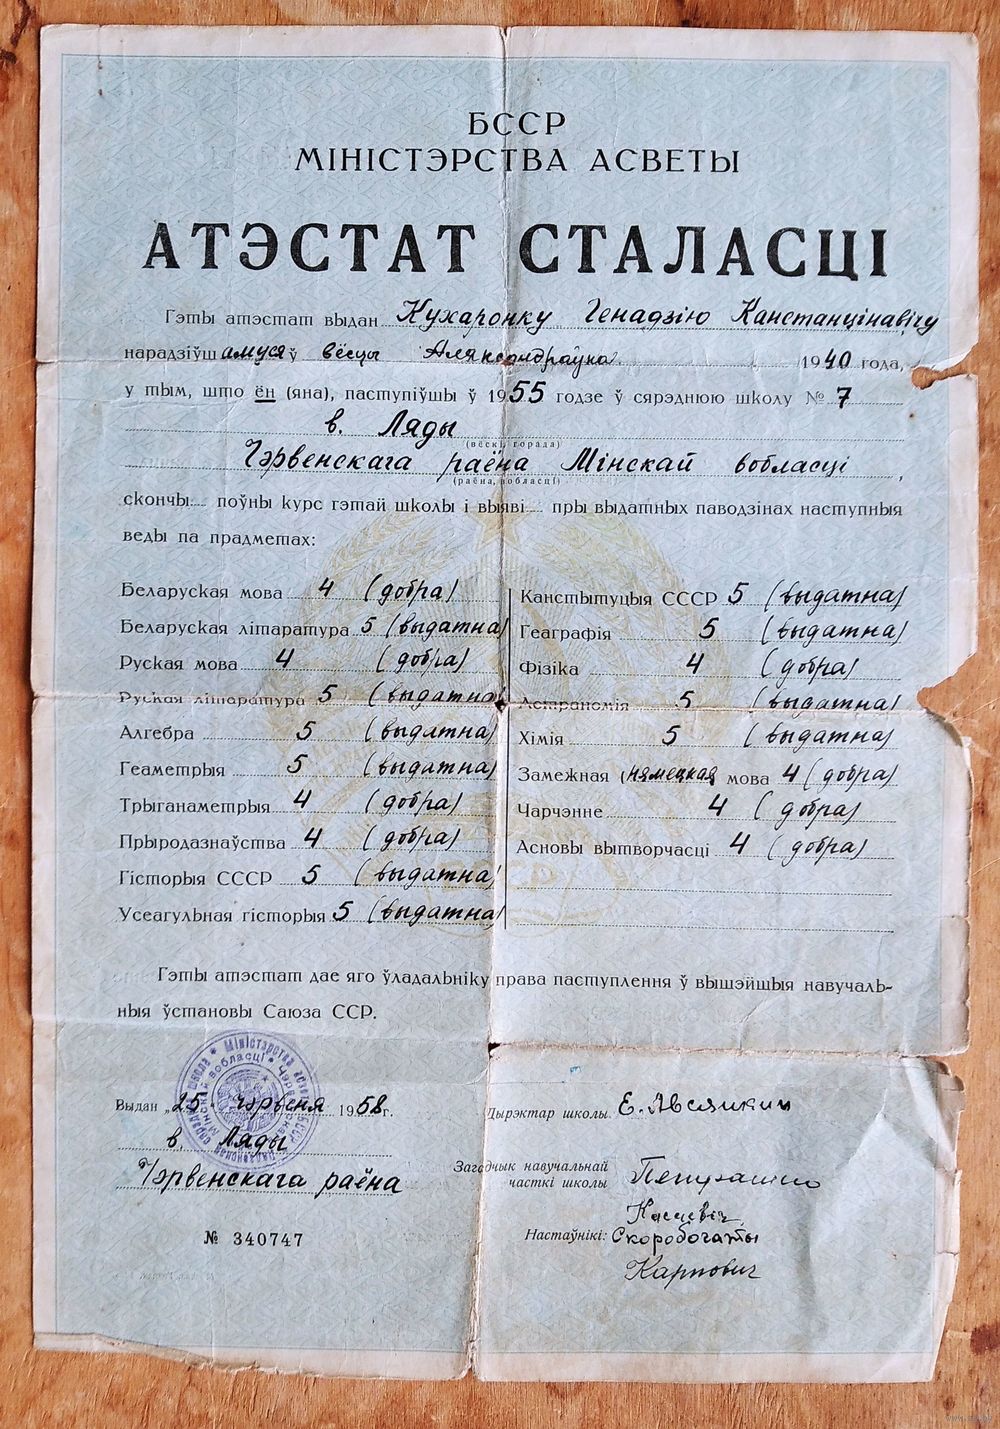 БССР
МІНІСТЭРСТВА АСВЕТЫ
АТЭСТАТ СТАЛАСЦІ
Гэты атэстат выдан Кухаронку Генадзію Канстанцінавічу
нарадзіўшамуся ў вёсцы Аляксандраўна 1940 года,
у тым, што ён (яна), паступіўшы ў 1955 годзе ў сярэднюю школу № 7
в. Ляды
(вёскі, горада)
Чэрвенскага раёна Мінскай вобласці,
(раёна, вобласці)
скончы... поўны курс гэтай школы і выяві... пры выдатных паводзінах наступныя
веды па прадметах:
Беларуская мова 4 (добра)
Беларуская літаратура 5 (выдатна)
Руская мова 4 (добра)
Руская літаратура 5 (выдатна)
Алгебра 5 (выдатна)
Геаметрыя 5 (выдатна)
Трыганаметрыя 4 (добра)
Прыродазнаўства 4 (добра)
Гісторыя СССР 5 (выдатна)
Усеагульная гісторыя 5 (выдатна)
Канстытуцыя СССР 5 (выдатна)
Геаграфія 5 (выдатна)
Фізіка 4 (добра)
Астраномія 5 (выдатна)
Хімія 5 (выдатна)
Замежная (нямецкая) мова 4 (добра)
Чарчэнне 4 (добра)
Асновы вытворчасці 4 (добра)
Гэты атэстат дае яго ўладальніку права паступлення ў вышэйшыя навучаль-
ныя ўстановы Саюза ССР.
Выдан „25 чэрвеня 1958 г.
в. Ляды
Чэрвенскага раёна
№ 340747
Дырэктар школы Е. Авсяикин
Загадчык навучальнай
часткі школы
Настаўнікі: Скоробогаты
Карпович